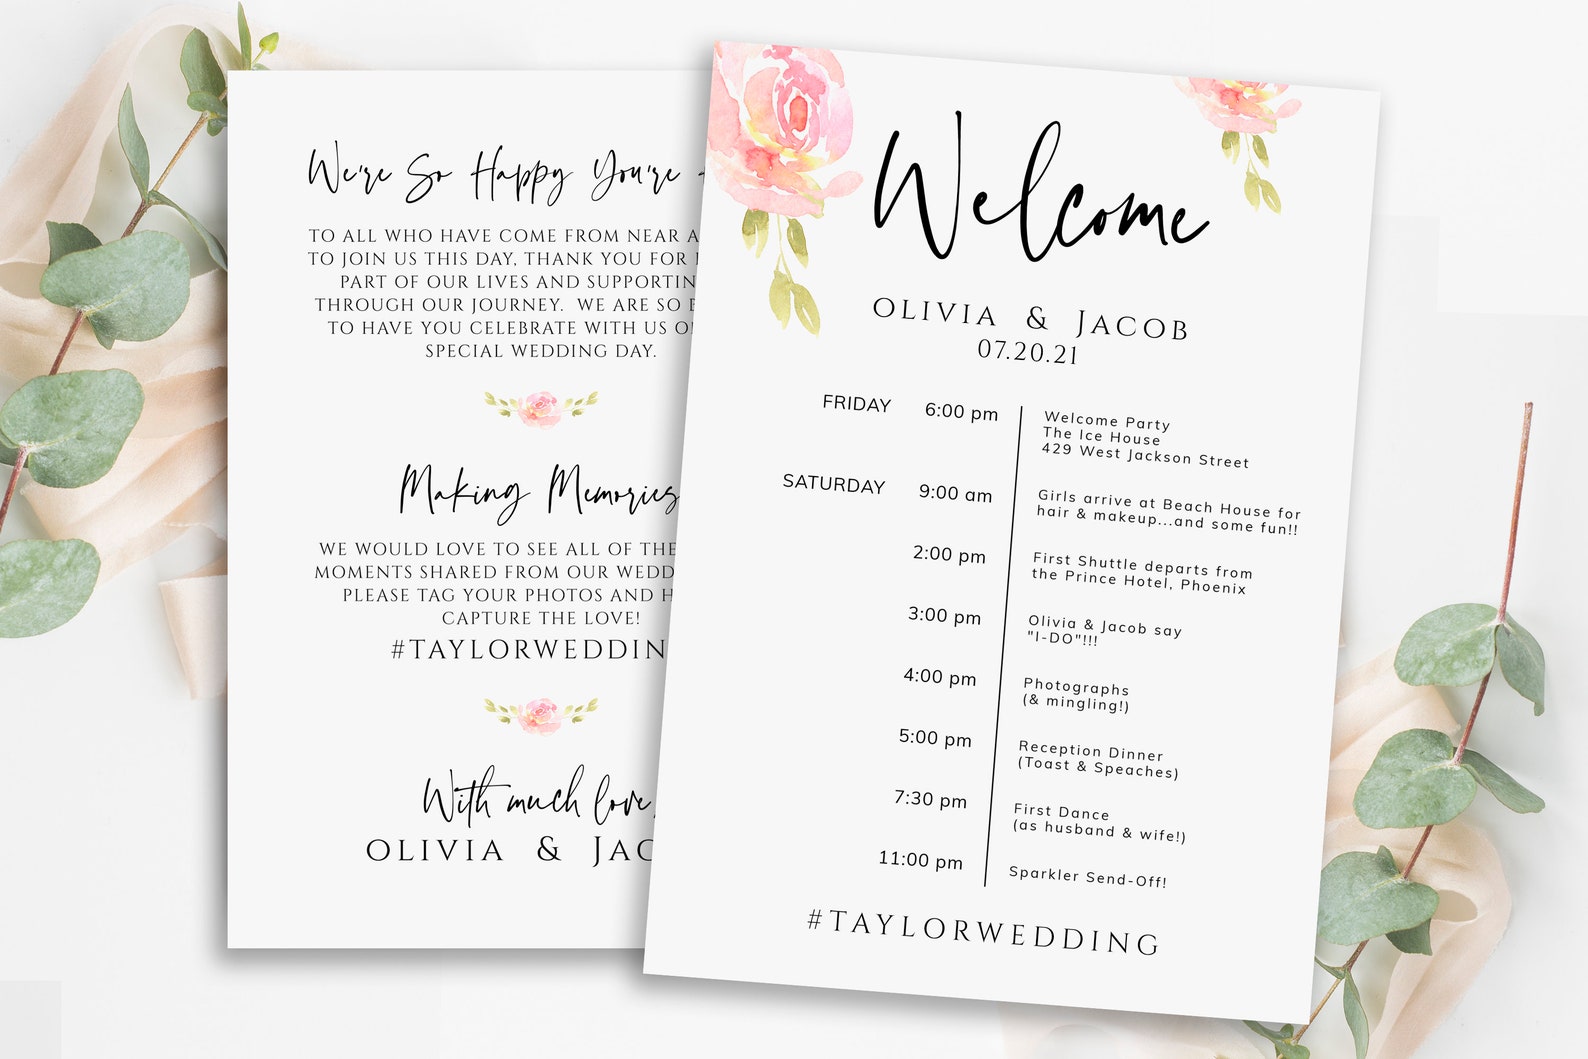 We're So Happy You're
TO ALL WHO HAVE COME FROM NEAR
TO JOIN US THIS DAY, THANK YOU FOR
PART OF OUR LIVES AND
THROUGH OUR JOURNEY. WE ARE SO
TO HAVE YOU CELEBRATE WITH US
SPECIAL WEDDING DAY.
Making Memories
WE WOULD LOVE TO SEE ALL OF
MOMENTS SHARED FROM OUR
PLEASE TAG YOUR PHOTOS AND
CAPTURE THE LOVE!
#TAYLORWEDDING
With much love,
OLIVIA &
Welcome
OLIVIA & JACOB
07.20.21
FRIDAY 6:00 pm Welcome Party
The Ice House
429 West Jackson Street
SATURDAY 9:00 am Girls arrive at Beach House for
hair & makeup...and some fun!!
2:00 pm First Shuttle departs from
the Prince Hotel, Phoenix
3:00 pm Olivia & Jacob say
"I-DO"!!!
4:00 pm Photographs
(& mingling!)
5:00 pm Reception Dinner
(Toast & Speaches)
7:30 pm First Dance
(as husband & wife!)
11:00 pm Sparkler Send-Off!
#TAYLORWEDDING